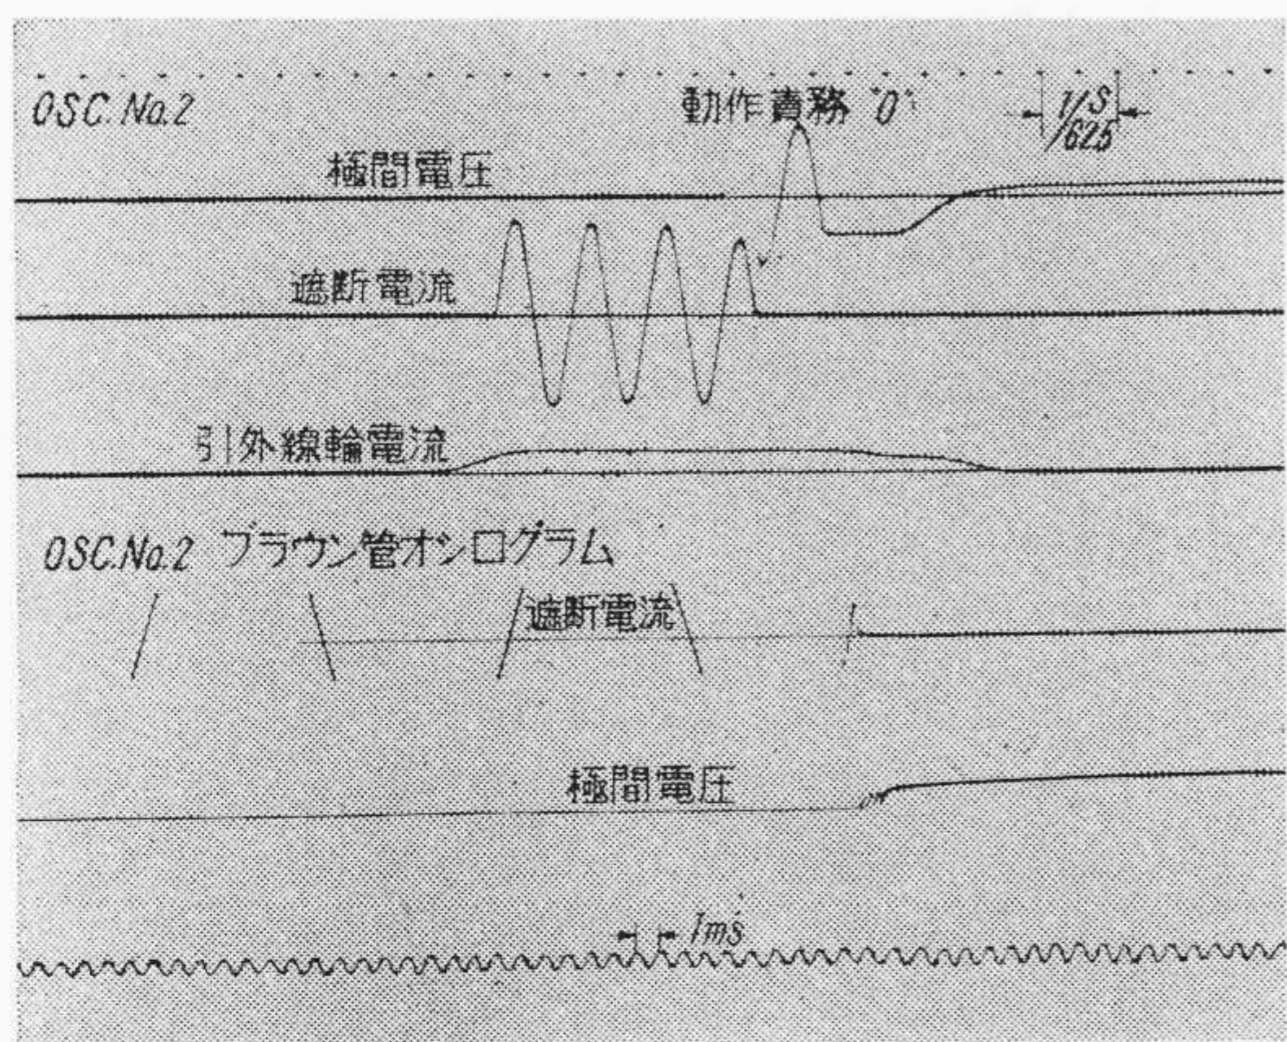 OSC.No.2
動作責務 "O"
1/62.5 S
極間電圧
遮断電流
引外線輪電流
OSC.No.2 ブラウン管オシログラム
遮断電流
極間電圧
1ms